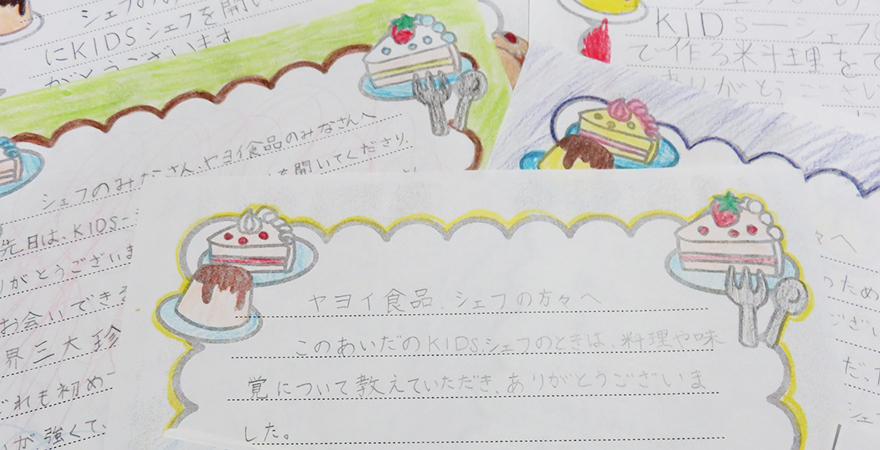 シェフの
にKIDSシェフを開い
がとうございます
KIDSーシェフ
で作る米斗理をて
ありがとうござい
シェフのみなさん、ヤヨイ食品のみなさんへ
を開いてくださり、
先日は、KIDSー
りがとうございま
お会いできる
界三大珍
どれも初め
が強くて、
ヤヨイ食品、シェフの方々へ
このあいだのKIDSシェフのときは、料理や味
覚について教えていただき、ありがとうございま
した。
々へ
ため
ござい
だっ
シェ